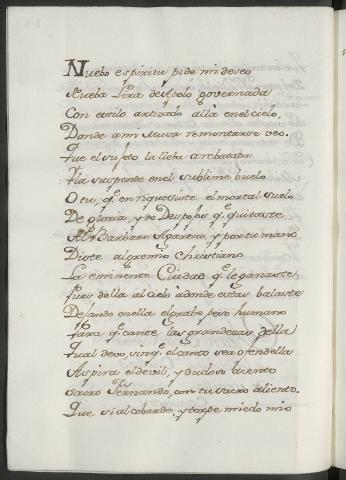 Nuebo espiritu pide mi deseo
Nueba Lira de Apolo governada
Con estilo artizado alla en el cielo,
Donde a mi Musa remontarse veo.
Que el sujeto la lleba arrebatada
Y la suspende en el sublime buelo
O tu, q.e enriqueciste el mortal suelo
De gloria, y de Despojos q.e quitaste
Al Barbaro Agareno, y por tu mano
Diste al gremio Christiano
La eminente Ciudad q.e le ganaste
Pues della al cielo adonde estas bolaste
Dejando en ella el grabe peso humano
Para q.e cante las grandezas della
Qual devo, sin q.e el canto sea ofendella
Aspira el devil, y dudoso acento
Sacro Fernando, con tu sacro aliento.
Que si al cobarde, y torpe miedo mio